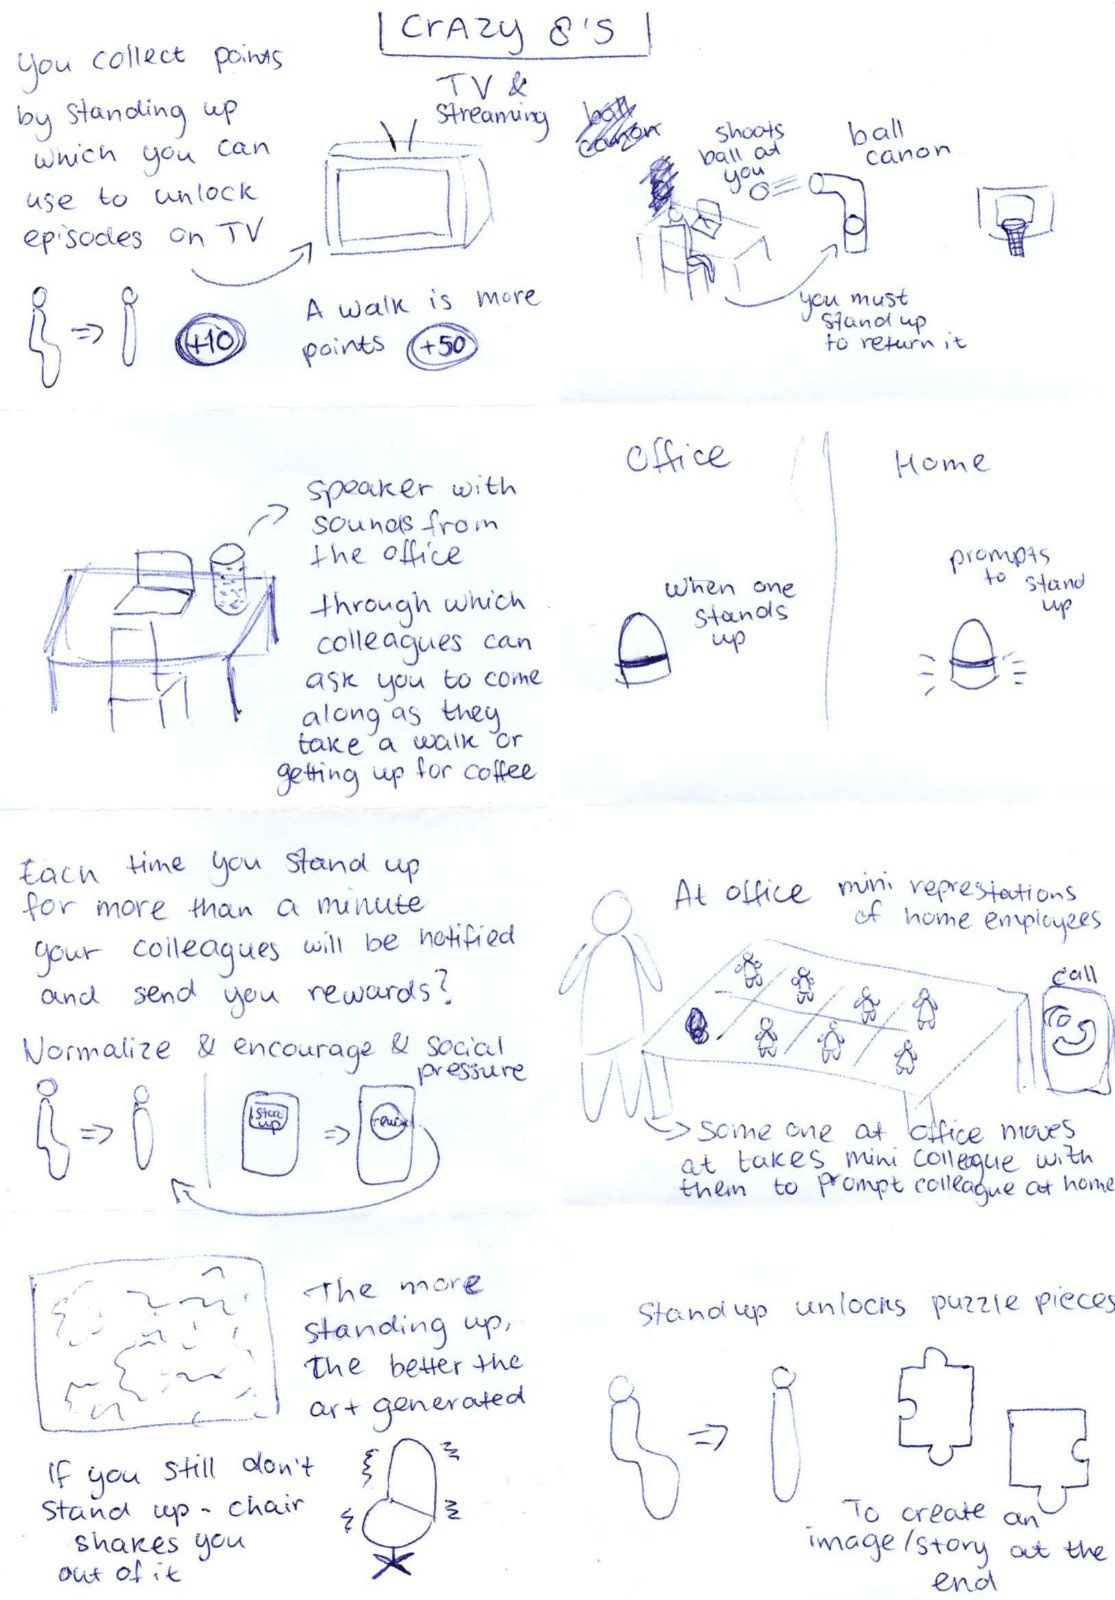 CrAzy 8's
you collect points
by standing up
which you can
use to unlock
episodes on TV
TV &
streaming
+10
A walk is more
points +50
ball
canon
shoots
ball at
you
ball
canon
you must
stand up
to return it
speaker with
sounds from
the office
through which
colleagues can
ask you to come
along as they
take a walk or
getting up for coffee
Office
when one
stands
up
Home
prompts
to stand
up
Each time you stand up
for more than a minute
your colleagues will be notified
and send you rewards?
Normalize & encourage & social
pressure
stand
up
reward
At office mini represtations
of home employees
call
Some one at office moves
at takes mini colleague with
them to prompt colleague at home
The more
standing up,
the better the
art generated
If you still don't
stand up - chair
shakes you
out of it
Stand up unlocks puzzle pieces
To create an
image/story at the
end